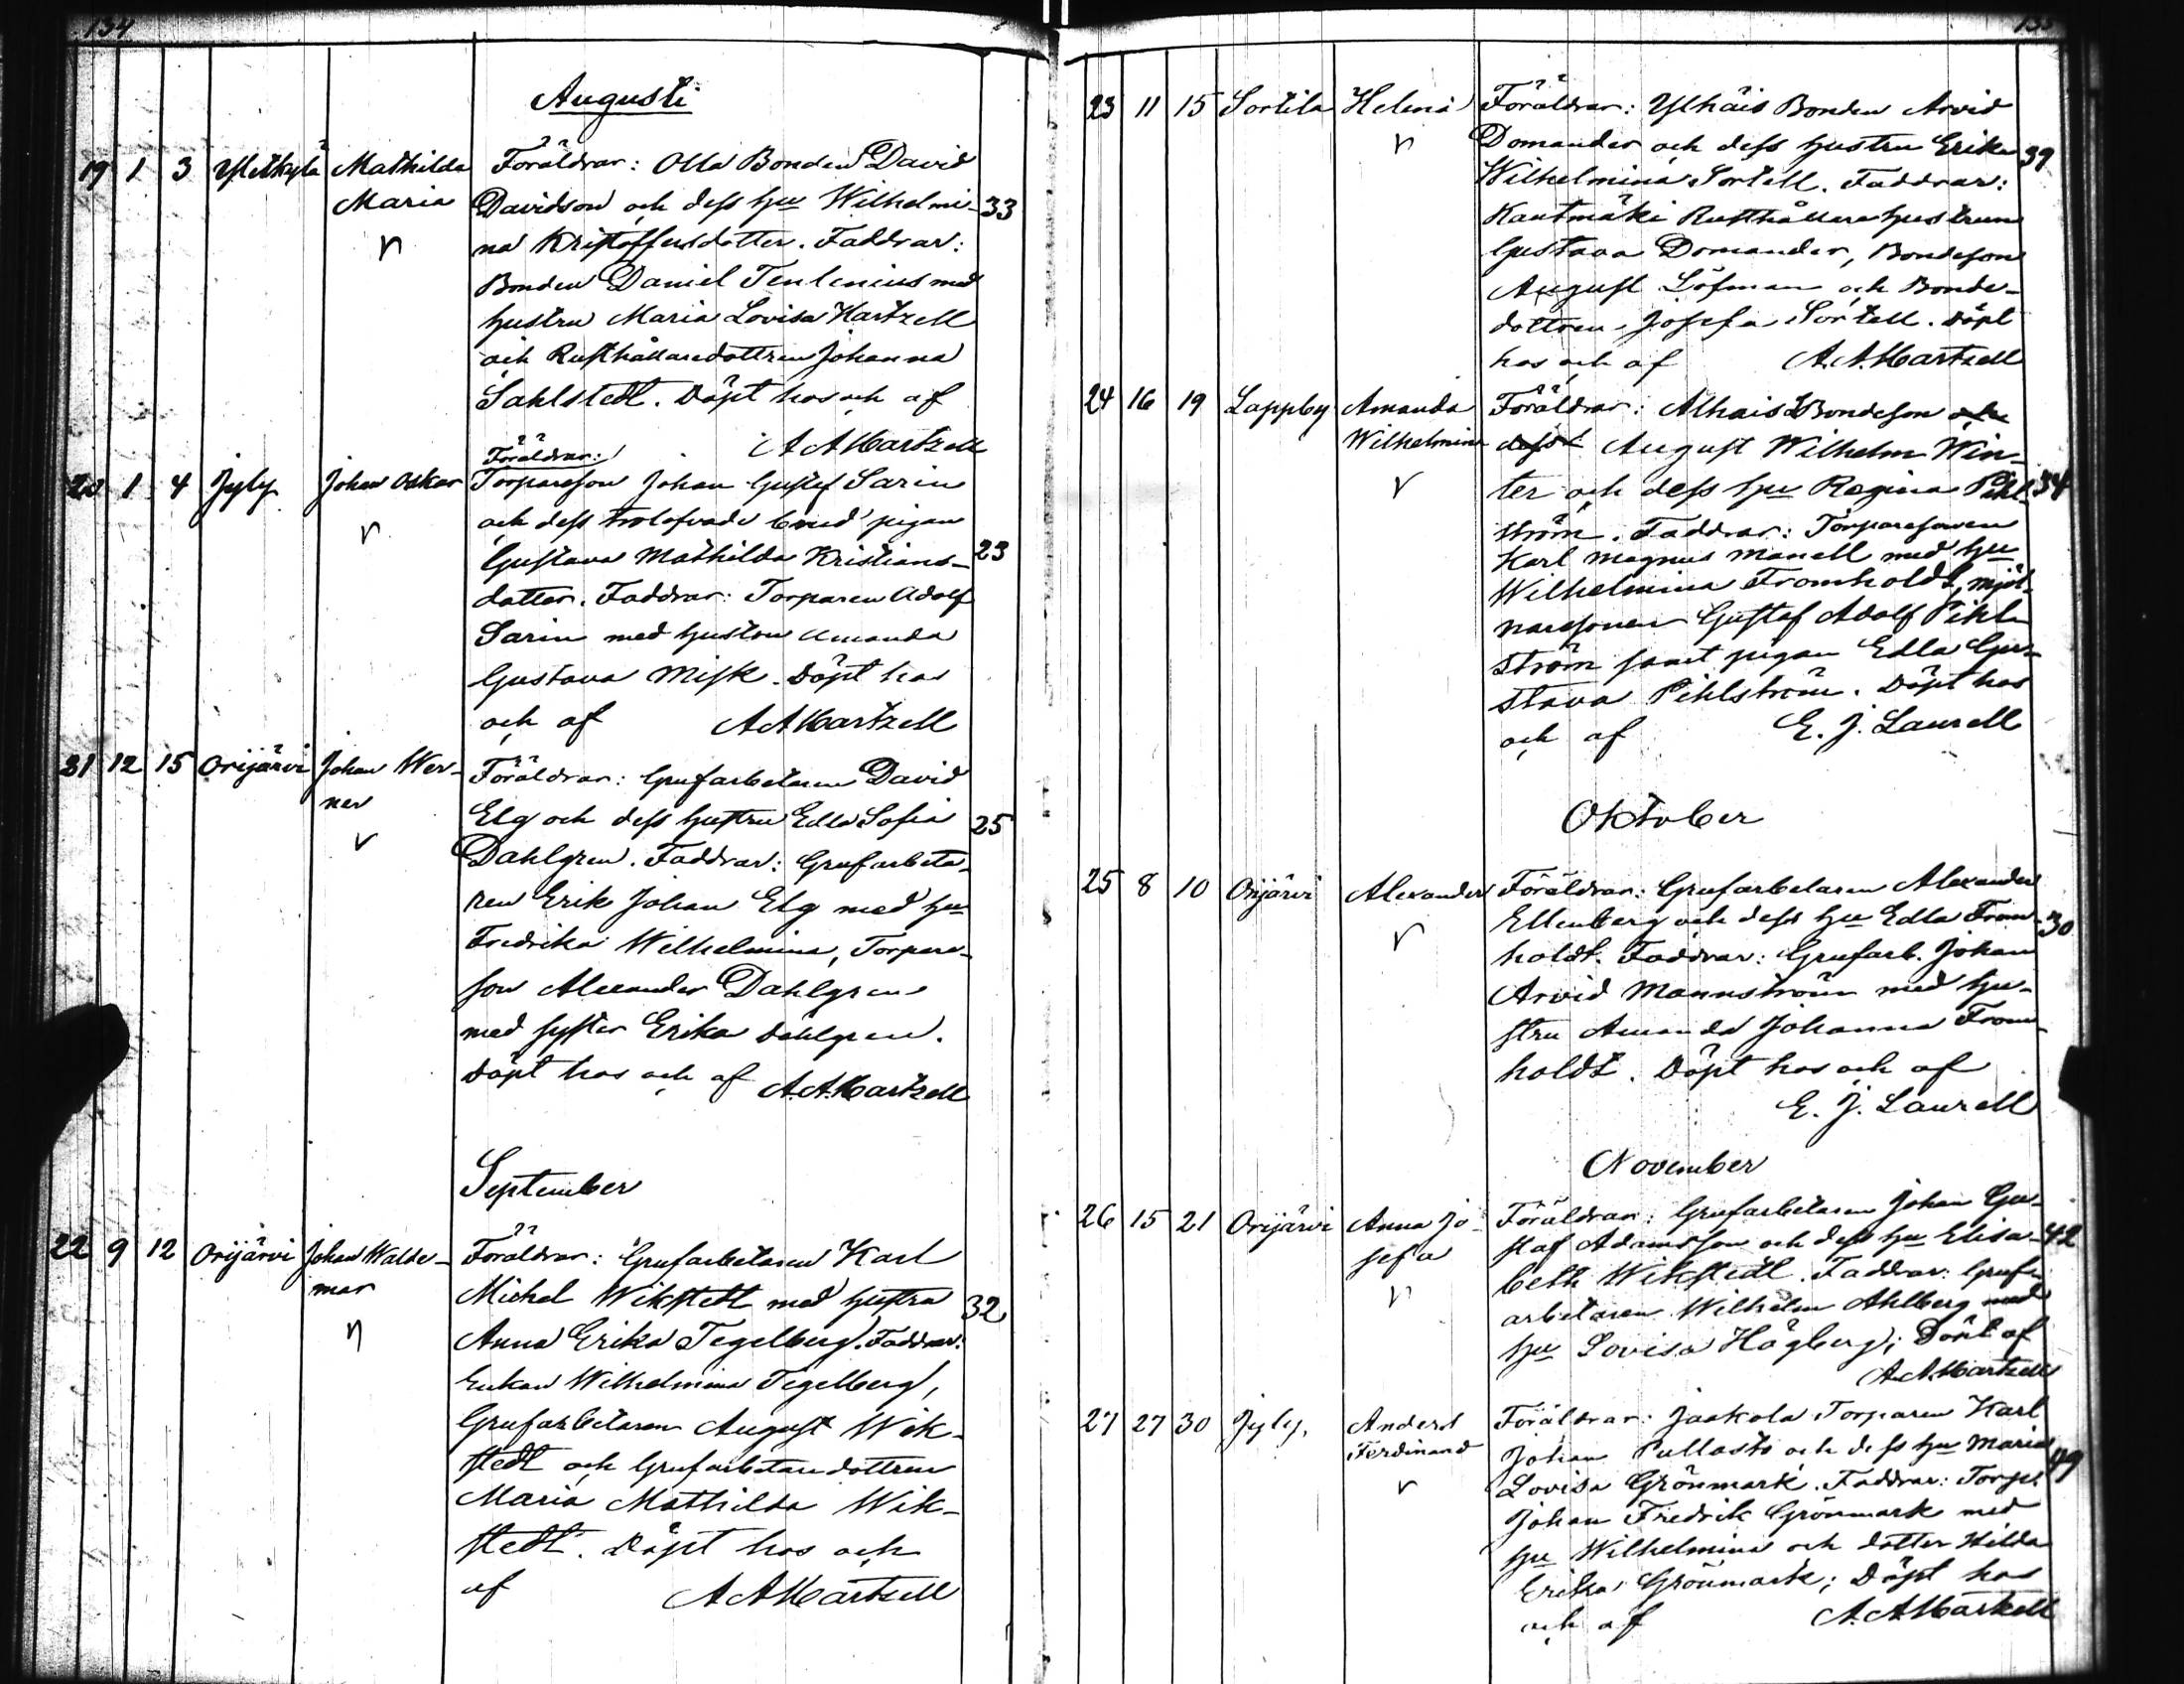 134
Augusti
19 1 3 Yletkylä Mathilda Föräldrar: Olla Bonden David
Maria Davidson och dess hu Wilhelmi- 33
na Kristoffersdotter. Faddrar:
Bonden Daniel Tenlenius med
hustru Maria Lovisa Hartzell
och Rusthållaredottren Johanna
Sahlstedt. Döpt hos och af
A A Hartzell
Föräldrar:
20 1 4 Jyly Johan Oskar Torpareson Johan Gustaf Sarin
och dess trolofvade brud pigan
Gustava Mathilda Kristians- 23
dotter. Faddrar: Torparen Adolf
Sarin med hustru Amanda
Gustava Misk. Döpt hos
och af A A Hartzell
21 12 15 Orijärvi Johan Wer- Föräldrar: Grufarbetaren David
ner Elg och dess hustru Edla Sofia 25
Dahlgren. Faddrar: Grufarbeta-
ren Erik Johan Elg med hu
Fredrika Wilhelmina, Torpare-
son Alexander Dahlgren
med syster Erika Dahlgren.
Döpt hos och af A.A. Hartzell
September
22 9 12 Orijärvi Johan Walde- Föräldrar: Grufarbetaren Karl
mar Michel Wikstedt med hustru 32
Anna Erika Tegelberg. Faddrar:
Enkan Wilhelmina Tegelberg,
Grufarbetaren August Wik-
stedt och Grufarbetaredottren
Maria Mathilda Wik-
stedt. Döpt hos och
af A A Hartzell
23 11 15 Sortila Helena Föräldrar: Ylhäis Bonden Arvid
Domander och dess hustru Erika 39
Wilhelmina Sortell. Faddrar:
Kautmäki Rusthållarehustrun
Gustava Domander, Bondeson
August Löfman och Bonde-
dottren Josefa Sortell. Döpt
hos och af A. A. Hartzell
24 16 19 Lappby Amanda Föräldrar: Alhais Bondeson och
Wilhelmina dess August Wilhelm Win-
ter och dess hu Regina Pihl- 34
ström. Faddrar: Torparesonen
Karl Magnus Manell med hu
Wilhelmina Fromholdt, mjöl-
naresonen Gustaf Adolf Pihl-
ström samt pigan Edla Gu-
stava Pihlström. Döpt hos
och af E. J. Laurell
Oktober
25 8 10 Orijärvi Alexander Föräldrar: Grufarbetaren Alexander
Ellenberg och dess hu Edla From- 30
holdt. Faddrar: Grufarb. Johan
Arvid Mannström med hu-
stru Amanda Johanna From-
holdt. Döpt hos och af
E. J. Laurell
November
26 15 21 Orijärvi Anna Jo- Föräldrar: Grufarbetaren Johan Gu-
sefa staf Adamsson och dess hu Elisa- 42
beth Wikstedt. Faddrar: Gruf-
arbetaren Wilhelm Ahlberg med
hu Lovisa Högberg; Döpt af
A. A. Hartzell
27 27 30 Jyly. Anders Föräldrar: Jaakola Torparen Karl
Ferdinand Johan Pullasto och dess hu Maria
Lovisa Grönmark. Faddrar: Torp.
Johan Fredrik Grönmark med
hu Wilhelmina och dotter Hilda
Erika Grönmark; Döpt hos
och af A. A. Hartzell